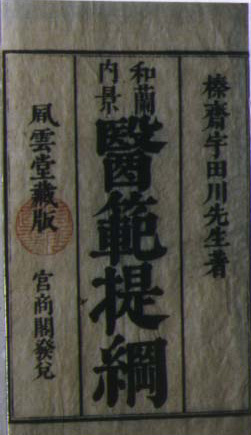 榛齋宇田川先生著
和蘭
内景
醫範提綱
風雲堂藏版
官商閣發兌